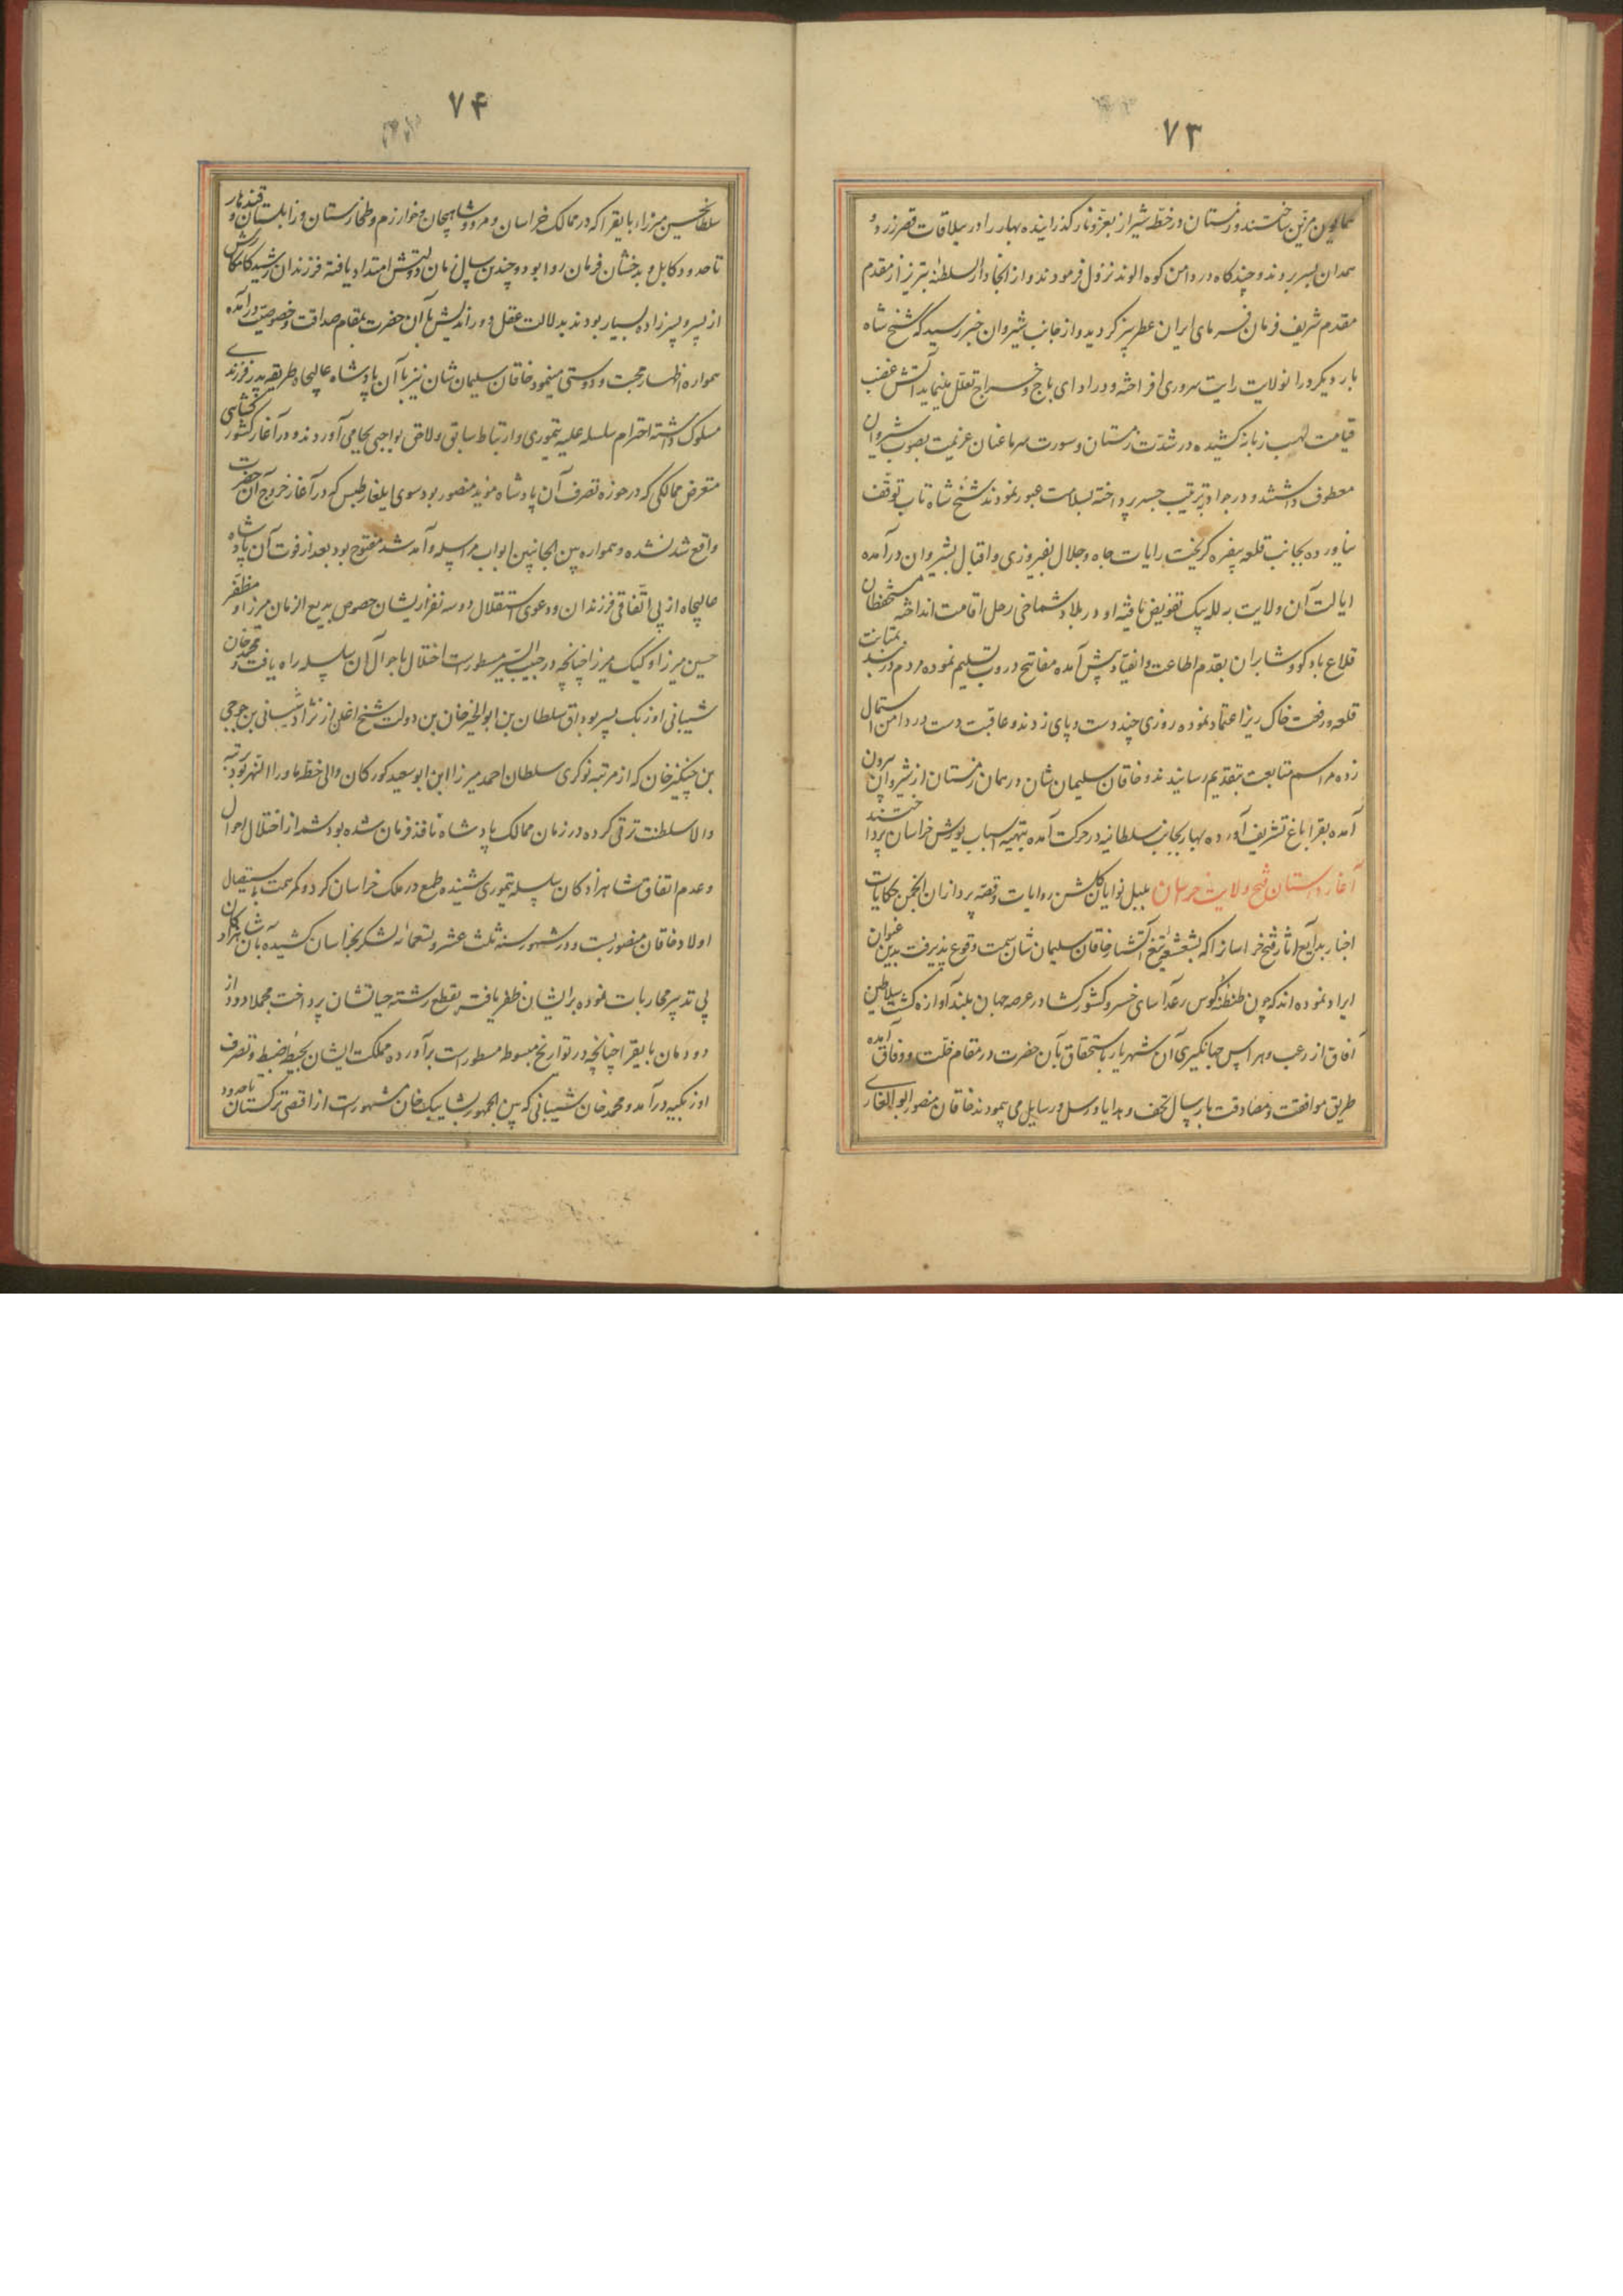 ۷۳
همایون مزین ساختند و زمستان در خطه شیراز بعز و ناز گذرانیده بهار را در ییلاقات قصر زرد و
همدان بسر بردند و چند گاه در دامن کوه الوند نزول فرمودند و از انجا دار السلطنه تبریز از مقدم
مقدم شریف فرمان فرمای ایران عطر بیز گردید و از جانب شیروان خبر رسید که شیخ شاه
بار دیگر در انولایت رایت سروری افراخته و در ادای باج و خراج تعلل مینماید آتش غضب
قیامت لهب زبانه کشیده در شدت زمستان و سورت سرما عنان عزیمت بصوب شیروان
معطوف داشتند و در جواد بترتیب جسر پرداخته بسلامت عبور نمودند شیخ شاه تاب توقف
نیاورده بجانب قلعه بیغرد گریخت رایات جاه و جلال بفیروزی و اقبال بشیروان درآمده
ایالت آن ولایت به لله بیک تفویض یافته او در بلاد شماخی رحل اقامت انداخته مستحفظان
قلاع بادکو و شابران بقدم اطاعت و انقیاد پیش آمده مفاتیح دروب تسلیم نموده مردم دربند بمتانت
قلعه و رفعت خاک ریز اعتماد نموده روزی چند دست و پای زدند و عاقبت دست در دامن استمال
زده مراسم متابعت بتقدیم رسانیدند و خاقان سلیمان شان در همان زمستان از شیروان بیرون
آمده بقراباغ تشریف آورده بهار بجانب سلطانیه در حرکت آمده بتهیه اسباب یورش خراسان پرداختند
آغاز داستان فتح ولایت خراسان بلبل نوایان گلشن روایات و قصه پردازان انجمن حکایات
اخبار بدایع اثار فتح خراسانرا که بشعشعه تیغ آتشبار خاقان سلیمان شان سمت وقوع پذیرفت بدین عنوان
ایراد نموده اند که چون طنطنه کوس رعد آسای خسرو کشورگشا در عرصه جهان بلند آوازه گشت سلاطین
آفاق از رعب و هراس جهانگیری آن شهریار باستحقاق بآن حضرت در مقام خلت و وفاق آمده
طریق موافقت و مصادقت بارسال تحف و هدایا و رسل و رسایل می پیمودند خاقان منصور ابو الغازی
۷۴
سلطانحسین میرزا بایقرا که در ممالک خراسان و مرو شاهیجان و خوارزم و طخارستان و زابلستان و قندهار
تا حدود کابل و بدخشان فرمان روا بود و چندین سال زمان دولتش امتداد یافته فرزندان رشید کامکارش
از پسر و پسرزاده بسیار بودند بدلالت عقل دوراندیش بآن حضرت بمقام صداقت و خصوصیت درآمده
همواره اظهار محبت و دوستی مینمود خاقان سلیمان شان نیز با آن پادشاه عالیجاه طریقه پدر فرزندی
مسلوک داشته احترام سلسله علیه تیموری و ارتباط سابق و لاحق بواجبی بجا می آوردند و در آغاز کشورگشایی
متعرض ممالکی که در حوزه تصرف آن پادشاه مؤید منصور بود سوی ایلغار طبس که در آغاز خروج آن حضرت
واقع شد نشده و همواره بین الجانبین ابواب مراسله و آمد شد مفتوح بود بعد از فوت آن پادشاه
عالیجاه از بی اتفاقی فرزندان و دعوی استقلال دو سه نفر ایشان خصوص بدیع الزمان میرزا و مظفر
حسین میرزا و کپک میرزا چنانچه در حبیب السیر مسطورست اختلال باحوال آن سلسله راه یافت و محمد خان
شیبانی اوزبک پسر بوداق سلطان بن ابوالخیر خان بن دولت شیخ اغلن از نژاد شیبانی بن جوجی
بن چنگیز خان که از مرتبه نوکری سلطان احمد میرزا ابن ابو سعید کورکان والی خطه ماوراالنهر بود برتبه
والا سلطنت ترقی کرده در زمان ممالک پادشاه نافذ فرمان شده بود شمه از اختلال احوال
و عدم اتفاق شاهزادکان سلسله تیموری شنیده طمع در ملک خراسان کرد و کمر همت باستیصال
اولاد خاقان منصور بست و در شهور سنه ثلث عشر و تسعمائه لشکر بخراسان کشیده با آن شاهزادکان
بی تدبیر محاربات نموده بر ایشان ظفر یافت بقطع رشته حیاتشان پرداخت مجملا دود از
دودمان بایقرا چنانچه در تواریخ مبسوطه مسطورست برآورده مملکت ایشان بحیطه ضبط و تصرف
اوزبکیه درآمد و محمد خان شیبانی که بین الجمهور بشاییبک خان مشهورست از اقصی ترکستان تا حدود